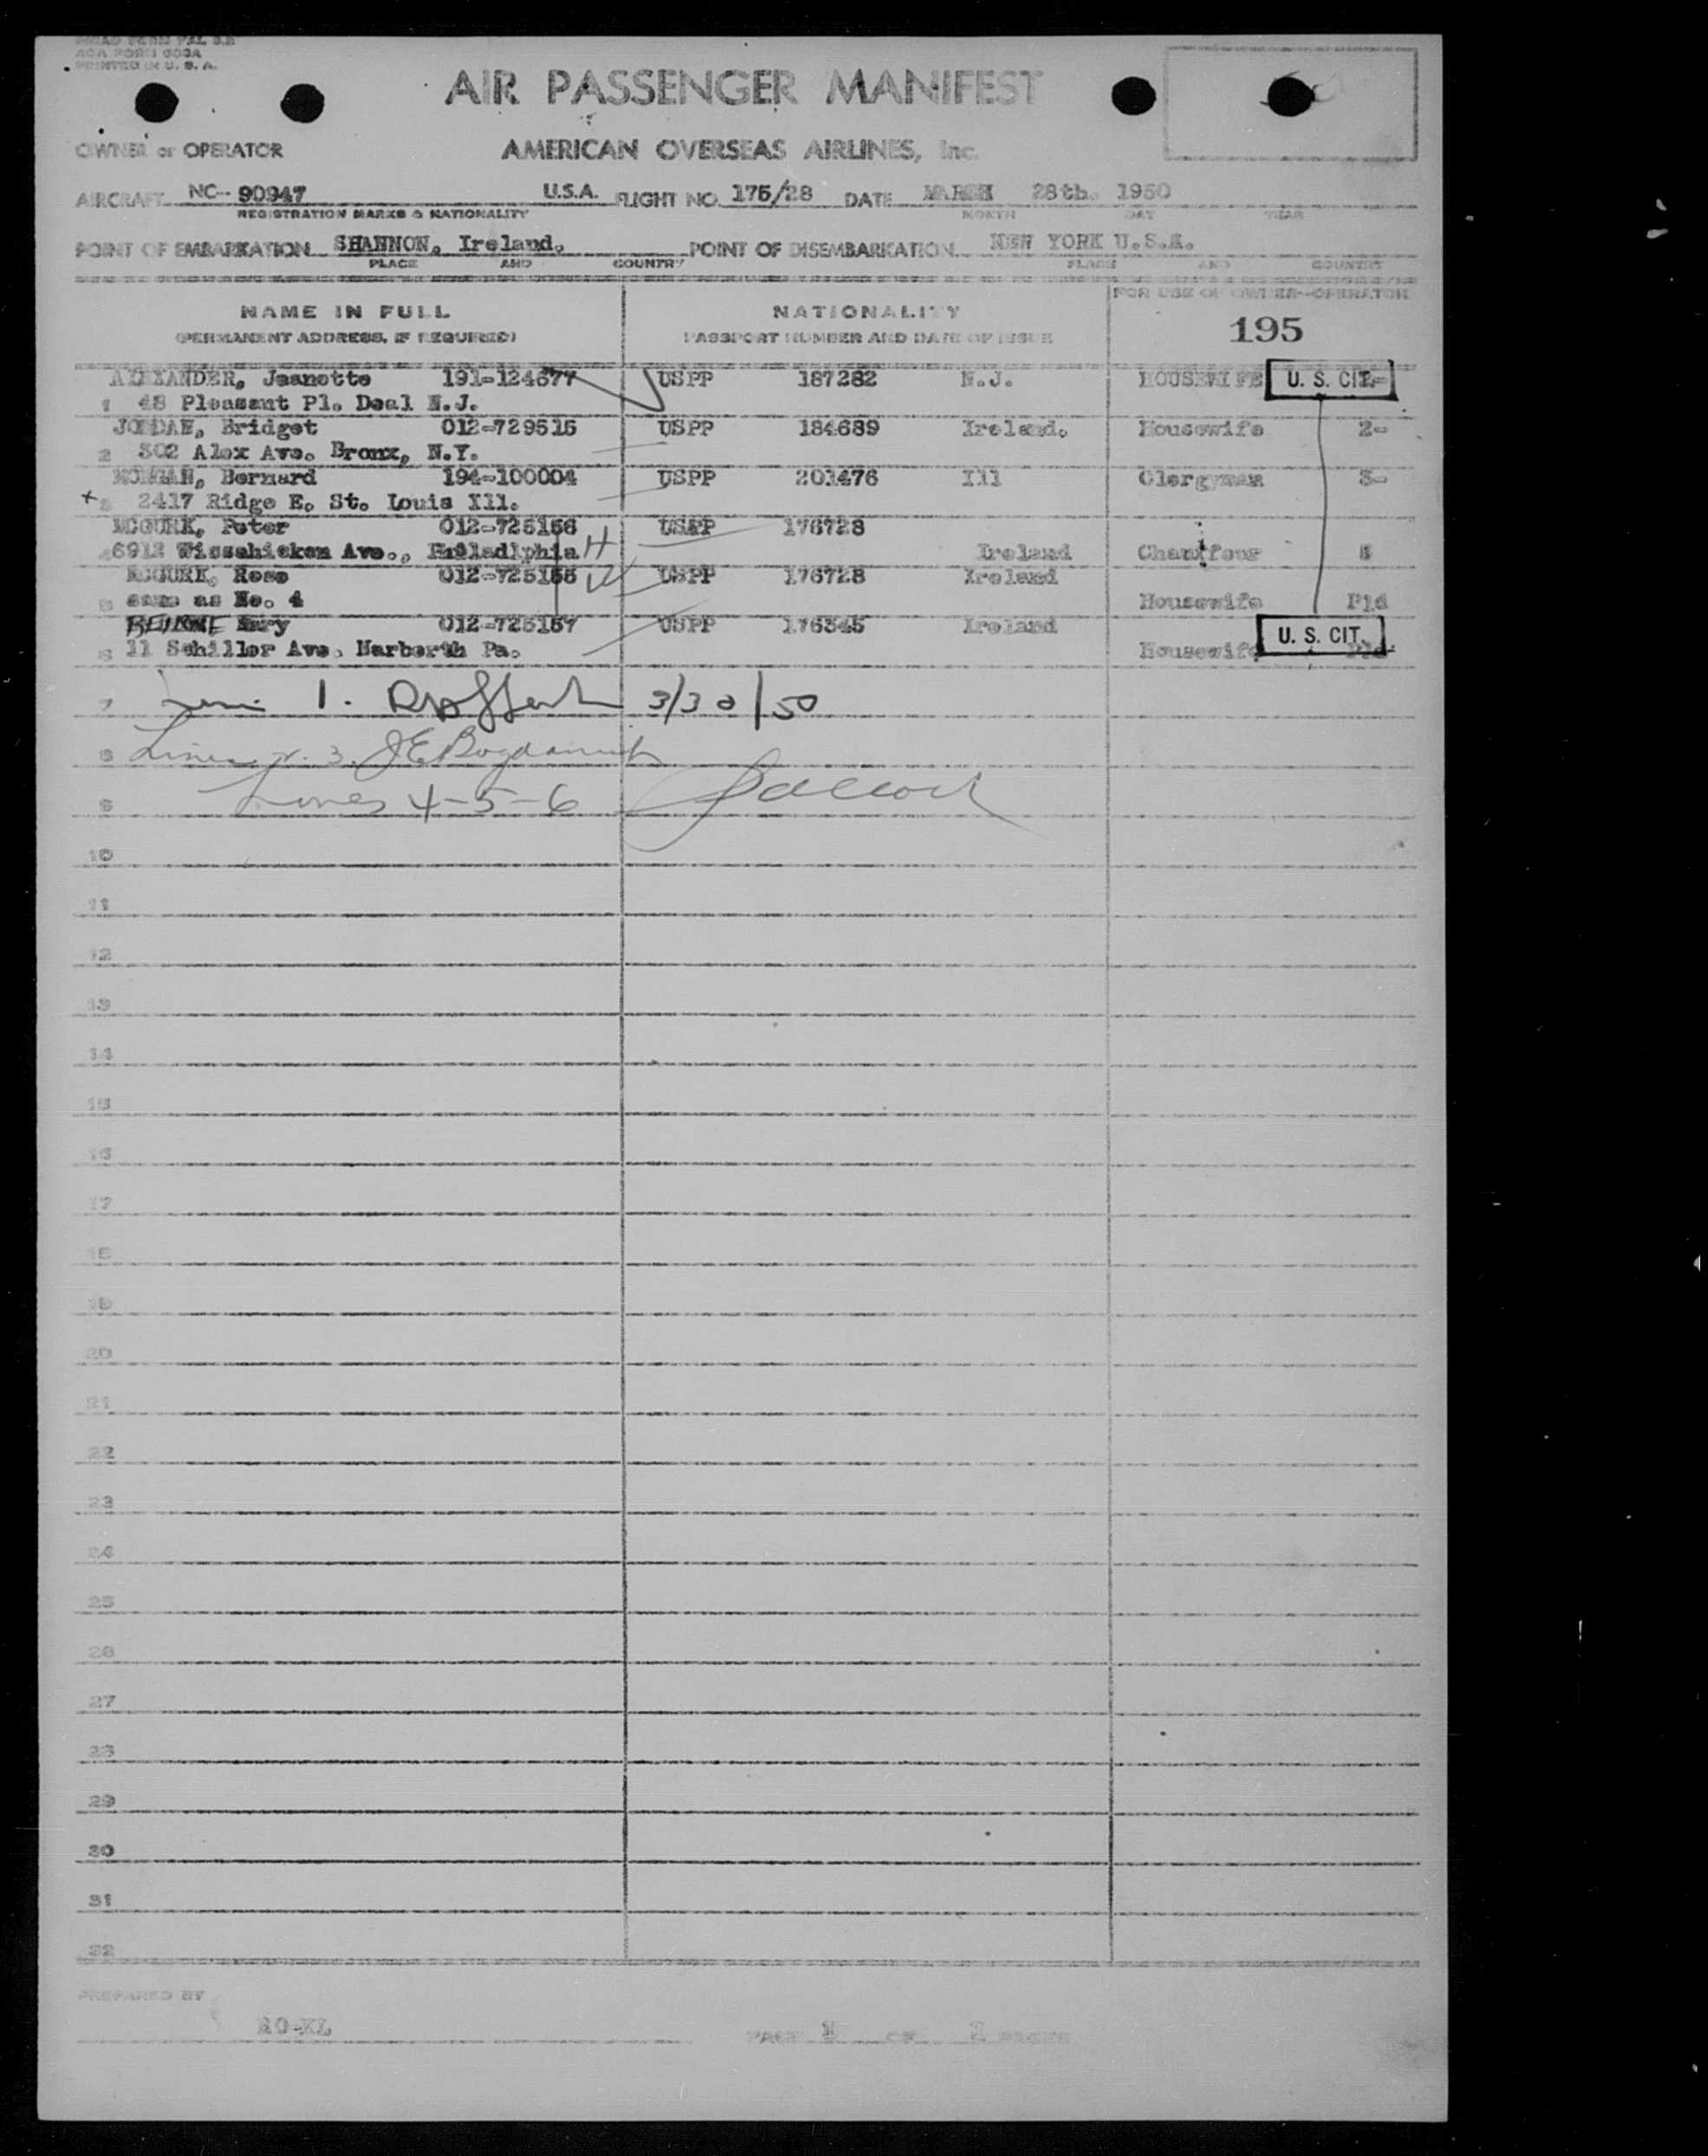 ACA FORM 603A
PRINTED IN U. S. A.
AIR PASSENGER MANIFEST
OWNER or OPERATOR AMERICAN OVERSEAS AIRLINES, Inc.
AIRCRAFT NC- 90947 U.S.A. FLIGHT NO. 175/28 DATE MARCH 28th. 1950
REGISTRATION MARKS & NATIONALITY MONTH DAY YEAR
POINT OF EMBARKATION SHANNON, Ireland. POINT OF DISEMBARKATION NEW YORK U.S.A.
PLACE AND COUNTRY PLACE AND COUNTRY
NAME IN FULL NATIONALITY FOR USE OF OWNER-OPERATOR
(PERMANENT ADDRESS, IF REQUIRED) PASSPORT NUMBER AND DATE OF ISSUE 195
ALEXANDER, Jeanette 191-124677 USPP 187282 N.J. HOUSEWIFE U. S. CIT.
1 48 Pleasant Pl. Deal N.J.
JORDAN, Bridget 012-729515 USPP 184689 Ireland. Housewife 2-
2 302 Alex Ave. Bronx, N.Y.
MORGAN, Bernard 194-100004 USPP 201476 Ill Clergyman 3-
3 2417 Ridge E. St. Louis Ill.
MCGURK, Peter 012-725156 USPP 176728
4 6912 Wissahicken Ave., Philadlphia H Ireland Chauffeur
MCGURK, Rose 012-725155 W USPP 176728 Ireland
5 same as No. 4 Housewife
Mary 012-725157 USPP 176345 Ireland U. S. CIT.
6 11 Schiller Ave. Narberth Pa. Housewife
7 1. 3/30/50
8 3.
9 Lines 4-5-6
10
11
12
13
14
15
16
17
18
19
20
21
22
23
24
25
26
27
28
29
30
31
32
PREPARED BY
PAGE OF PAGES